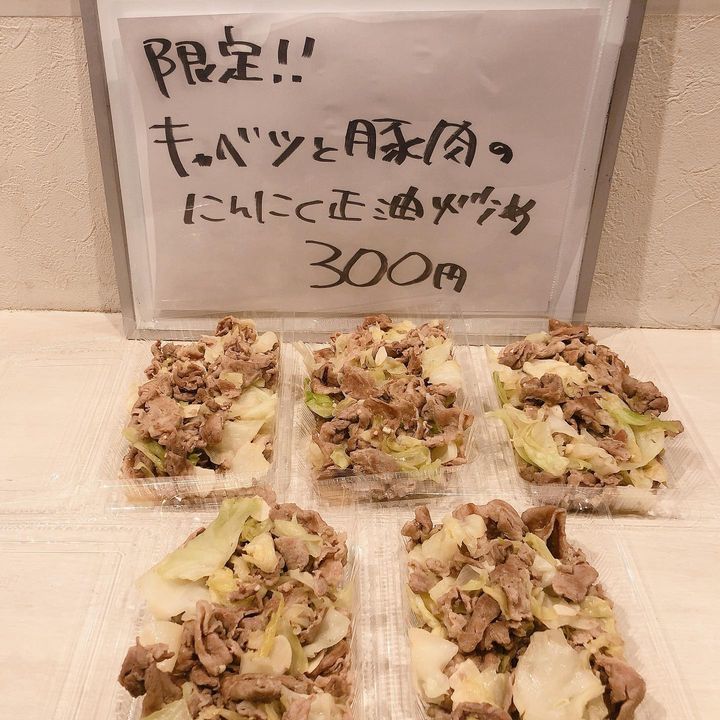 限定!!
キャベツと豚肉の
にんにく正油炒め
300円